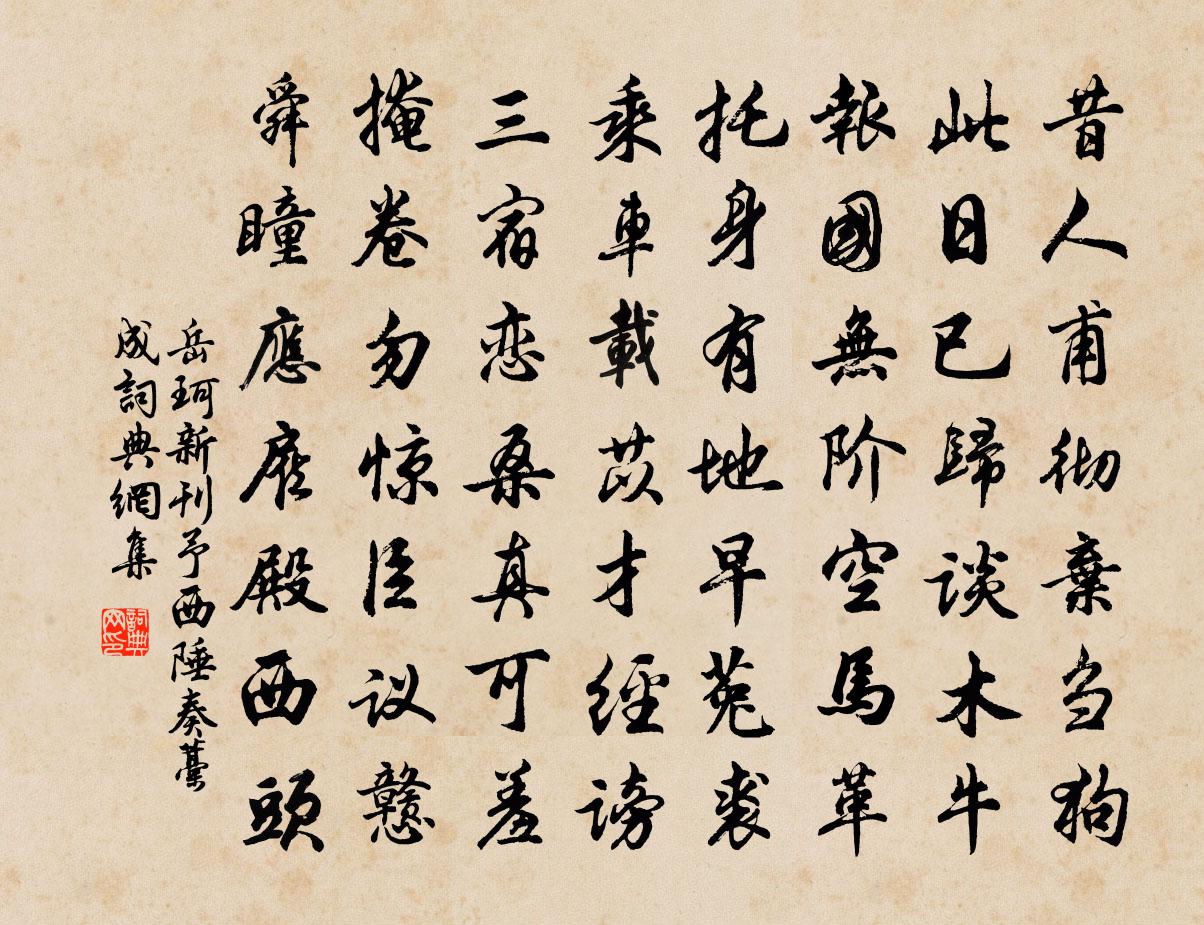 昔人甫彻棄刍狗
此日已歸谈木牛
報國無阶空馬革
托身有地早菟裘
乘車載苡才經谤
三宿恋桑真可羞
掩卷勿惊臣议戆
舜瞳應殿西頭
岳珂新刊予西陲奏藁
成詞典網集
詞典
网印